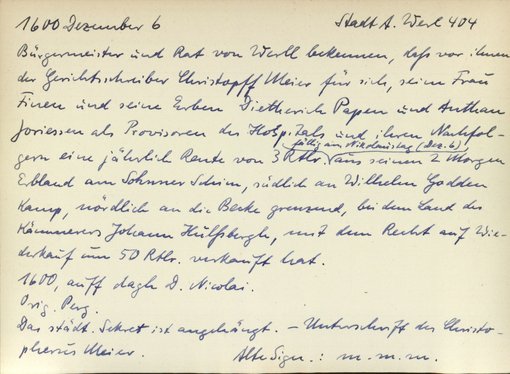 1600 Dezember 6 Stadt A. Werl 404
Bürgermeister und Rat von Werll bekennen, daß vor ihnen
der Gerichtschreiber Christopff Meier für sich, seine Frau
Finen und seine Erben Dietherich Papen und Anthon
Joriessen als Provisoren des Hospitals und ihren Nachfol-
fällig am Nikolaustag (Dez. 6)
gern eine jährlich Rente von 3 Rtlr. aus seinen 2 Morgen
Erbland am, südlich an Wilhelm Godden
Kamp, nördlich an die Becke grenzend, bei dem Land des
Kämmerers Johann Hülfsbergh, mit dem Recht auf Wie-
derkauf um 50 Rtlr. verkauft hat.
1600, auff dagh D. Nicolai.
Orig. Perg.
Das städt. Sekret ist angehängt. - Unterschrift des Christo-
pherus Meier. Alte Sign.: m.m.m.